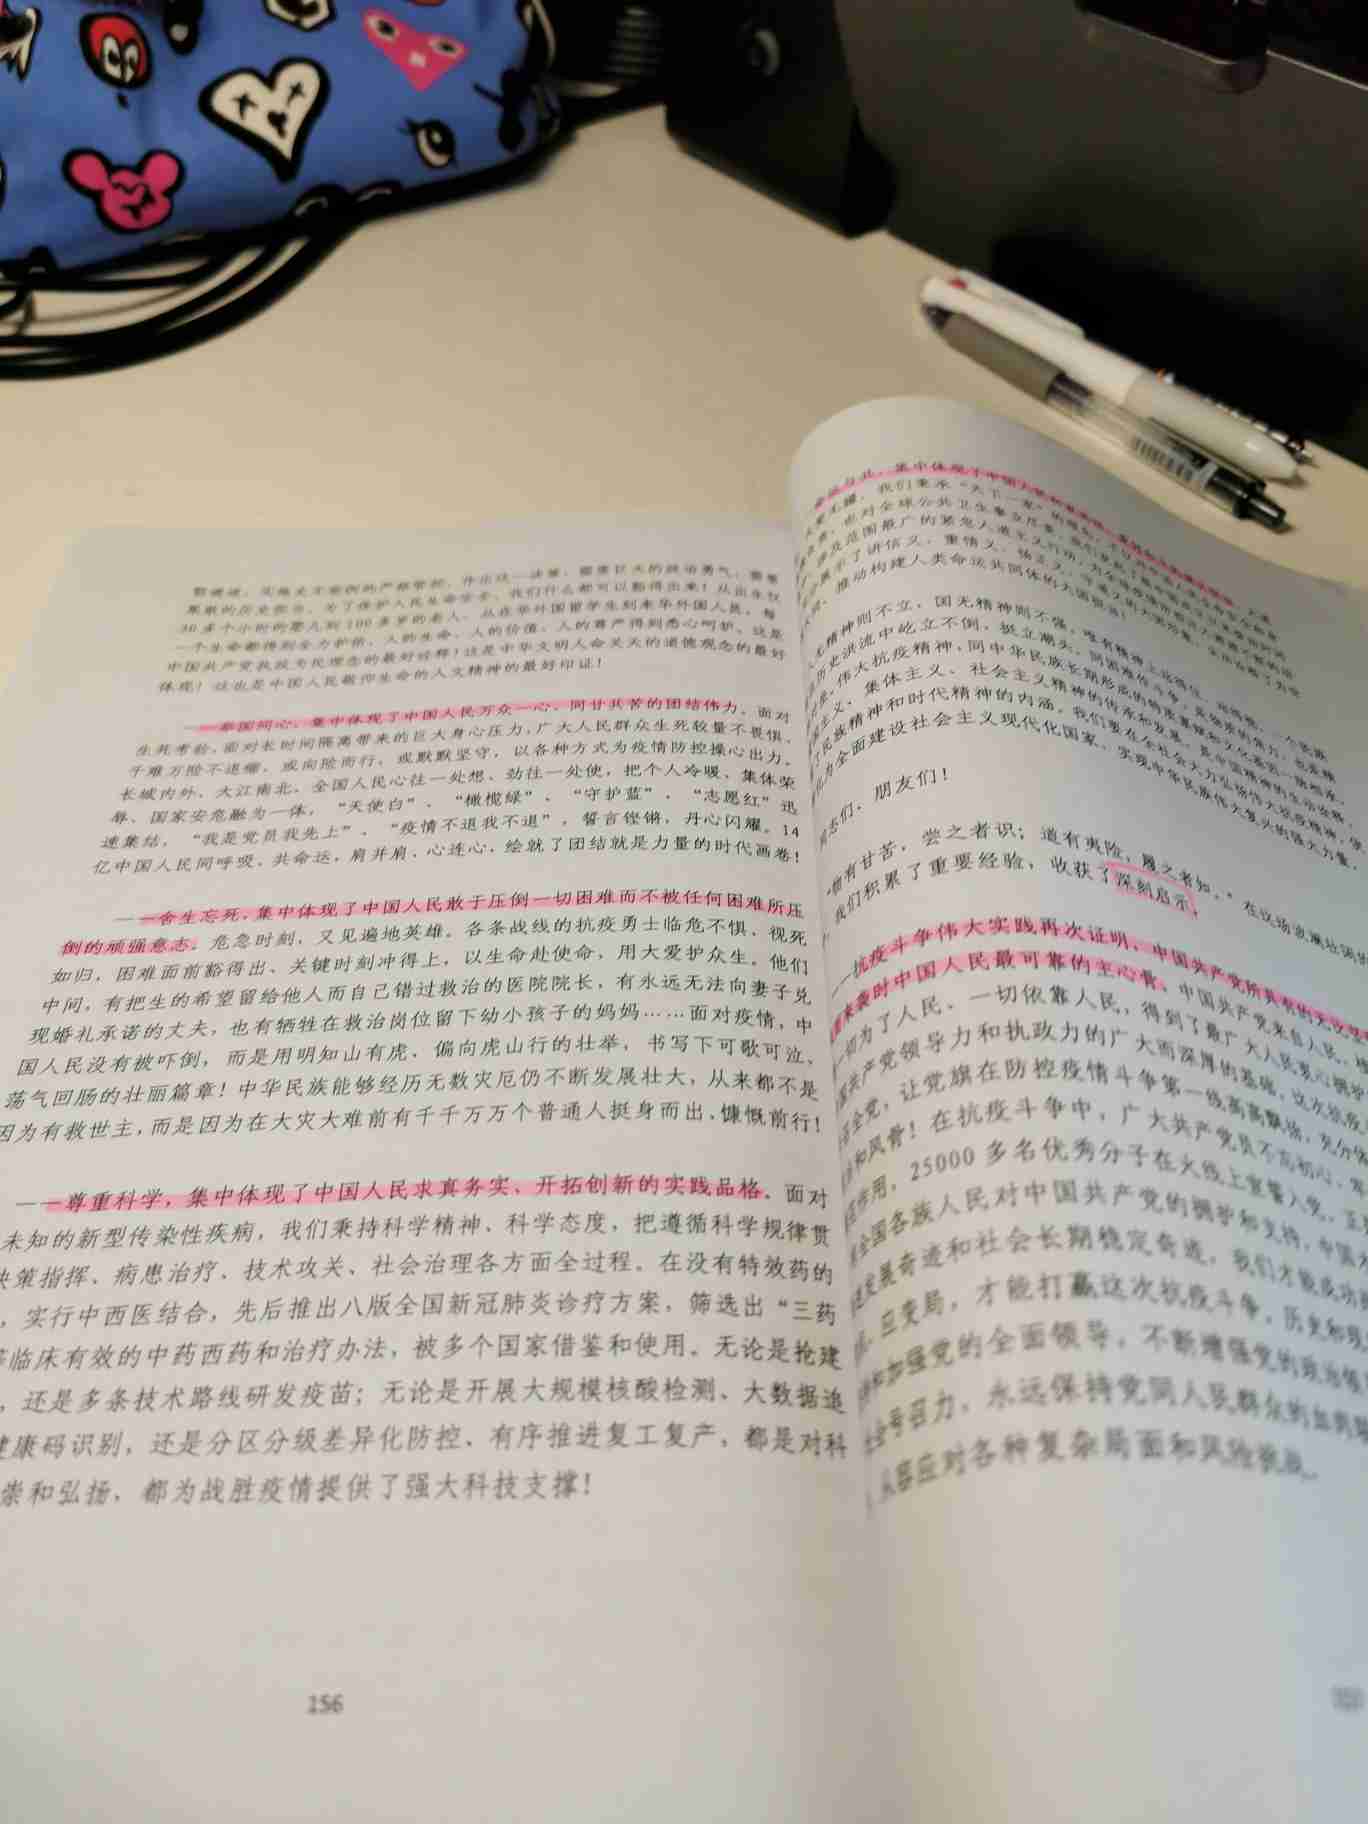 果敢的历史担当。为了保护人民生命安全，我们什么都可以豁得出来！从出生仅
30多个小时的婴儿到100多岁的老人，从在华外国留学生到来华外国人员，每
一个生命都得到全力护佑，人的生命、人的价值、人的尊严得到悉心呵护。这是
中国共产党执政为民理念的最好诠释！这是中华文明人命关天的道德观念的最好
体现！这也是中国人民敬仰生命的人文精神的最好印证！
——举国同心，集中体现了中国人民万众一心、同甘共苦的团结伟力。面对
生死考验，面对长时间隔离带来的巨大身心压力，广大人民群众生死较量不畏惧、
千难万险不退缩，或向险而行，或默默坚守，以各种方式为疫情防控操心出力。
长城内外、大江南北，全国人民心往一处想、劲往一处使，把个人冷暖、集体荣
辱、国家安危融为一体，“天使白”、“橄榄绿”、“守护蓝”、“志愿红”迅
速集结，“我是党员我先上”、“疫情不退我不退”，誓言铿锵，丹心闪耀。14
亿中国人民同呼吸、共命运，肩并肩、心连心，绘就了团结就是力量的时代画卷！
——舍生忘死，集中体现了中国人民敢于压倒一切困难而不被任何困难所压
倒的顽强意志。危急时刻，又见遍地英雄。各条战线的抗疫勇士临危不惧、视死
如归，困难面前豁得出、关键时刻冲得上，以生命赴使命，用大爱护众生。他们
中间，有把生的希望留给他人而自己错过救治的医院院长，有永远无法向妻子兑
现婚礼承诺的丈夫，也有牺牲在救治岗位留下幼小孩子的妈妈……面对疫情，中
国人民没有被吓倒，而是用明知山有虎、偏向虎山行的壮举，书写下可歌可泣、
荡气回肠的壮丽篇章！中华民族能够经历无数灾厄仍不断发展壮大，从来都不是
因为有救世主，而是因为在大灾大难前有千千万万个普通人挺身而出、慷慨前行！
——尊重科学，集中体现了中国人民求真务实、开拓创新的实践品格。面对
未知的新型传染性疾病，我们秉持科学精神、科学态度，把遵循科学规律贯
决策指挥、病患治疗、技术攻关、社会治理各方面全过程。在没有特效药的
，实行中西医结合，先后推出八版全国新冠肺炎诊疗方案，筛选出“三药
等临床有效的中药西药和治疗办法，被多个国家借鉴和使用。无论是抢建
，还是多条技术路线研发疫苗；无论是开展大规模核酸检测、大数据追
健康码识别，还是分区分级差异化防控、有序推进复工复产，都是对科
崇和弘扬，都为战胜疫情提供了强大科技支撑！
156
推动构建人类命运共同体的大国担当！
无精神则不立，国无精神则不强。唯有精神上站得住、站得稳，一个民族
历史洪流中屹立不倒、挺立潮头。同困难作斗争，是物质的角力，也是精
伟大抗疫精神，同中华民族长期形成的特质禀赋和文化基因一脉相承，
主义、集体主义、社会主义精神的传承和发展，是中国精神的生动诠释，
了民族精神和时代精神的内涵。我们要在全社会大力弘扬伟大抗疫精神，使
为全面建设社会主义现代化国家、实现中华民族伟大复兴的强大力量。
同志们、朋友们！
物有甘苦，尝之者识；道有夷险，履之者知。在这场波澜壮阔的
我们积累了重要经验，收获了深刻启示。
——抗疫斗争伟大实践再次证明，中国共产党所具有的无比坚
来袭时中国人民最可靠的主心骨。中国共产党来自人民、植
一切为了人民、一切依靠人民，得到了最广大人民衷心拥护
共产党领导力和执政力的广大而深厚的基础。这次抗疫
全党，让党旗在防控疫情斗争第一线高高飘扬，充分体
和风骨！在抗疫斗争中，广大共产党员不忘初心、牢
作用，25000多名优秀分子在火线上宣誓入党。正
全国各族人民对中国共产党的拥护和支持，中国才
发展奇迹和社会长期稳定奇迹，我们才能成功
应变局，才能打赢这次抗疫斗争。历史和现
和加强党的全面领导，不断增强党的政治领
号召力，永远保持党同人民群众的血肉联
从容应对各种复杂局面和风险挑战。